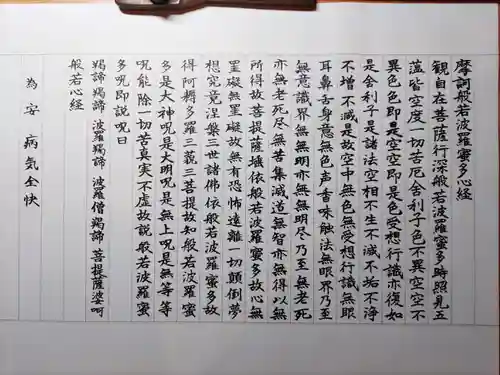 摩訶般若波羅蜜多心経
観自在菩薩行深般若波羅蜜多時照見五
蘊皆空度一切苦厄舎利子色不異空空不
異色色即是空空即是色受想行識亦復如
是舎利子是諸法空相不生不滅不垢不浄
不増不減是故空中無色無受想行識無眼
耳鼻舌身意無色声香味触法無眼界乃至
無意識界無無明亦無無明尽乃至無老死
亦無老死尽無苦集滅道無智亦無得以無
所得故菩提薩埵依般若波羅蜜多故心無
罣礙無罣礙故無有恐怖遠離一切顛倒夢
想究竟涅槃三世諸佛依般若波羅蜜多故
得阿耨多羅三藐三菩提故知般若波羅蜜
多是大神呪是大明呪是無上呪是無等等
呪能除一切苦真実不虚故説般若波羅蜜
多呪即説呪曰
羯諦羯諦 波羅羯諦 波羅僧羯諦 菩提薩婆呵
般若心経
為 安 病気全快